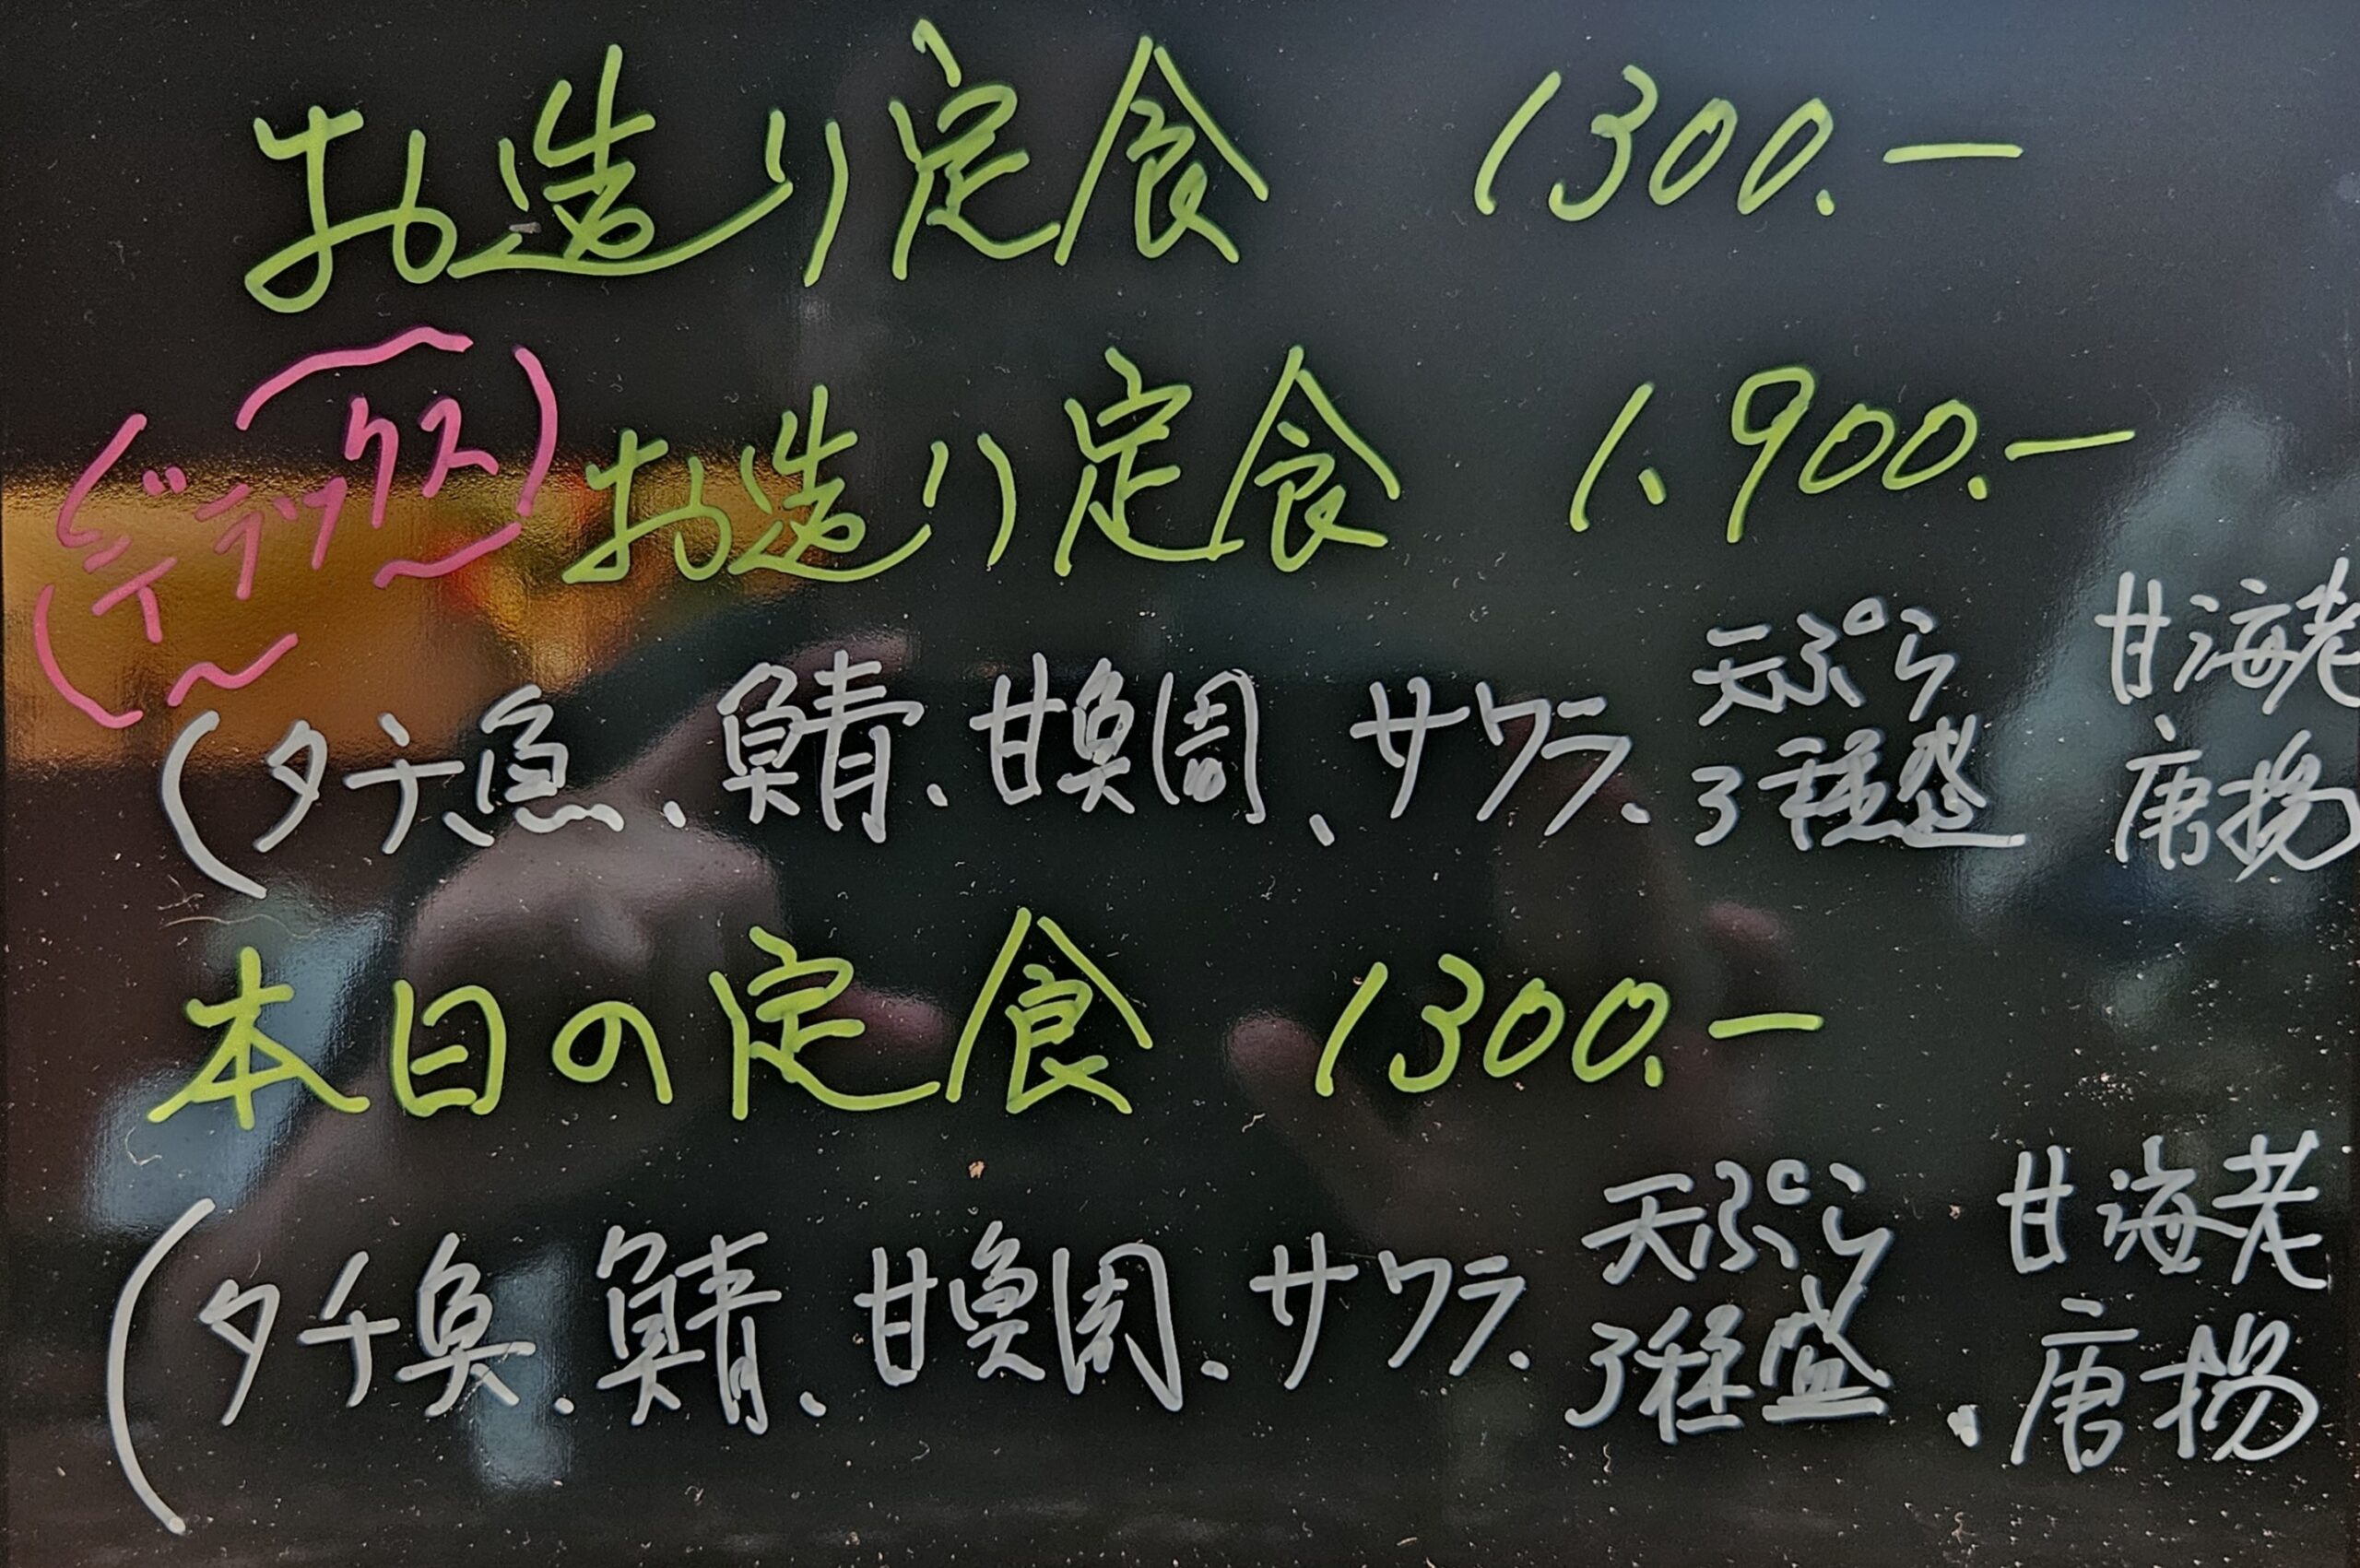 お造り定食 1300.ー
デラックス お造り定食 1,900.ー
(タチ魚、鯖、甘鯛、サワラ、天ぷら3種盛 甘海老唐揚
本日の定食 1300.ー
(タチ魚、鯖、甘鯛、サワラ、天ぷら3種盛、甘海老唐揚